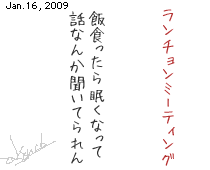 Jan.16, 2009
ランチョンミーティング
飯食ったら眠くなって
話なんか聞いてられん